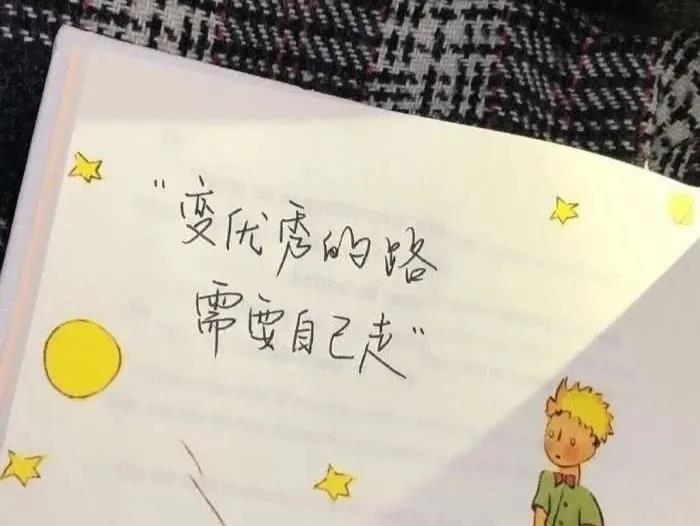 “变优秀的路
需要自己走”